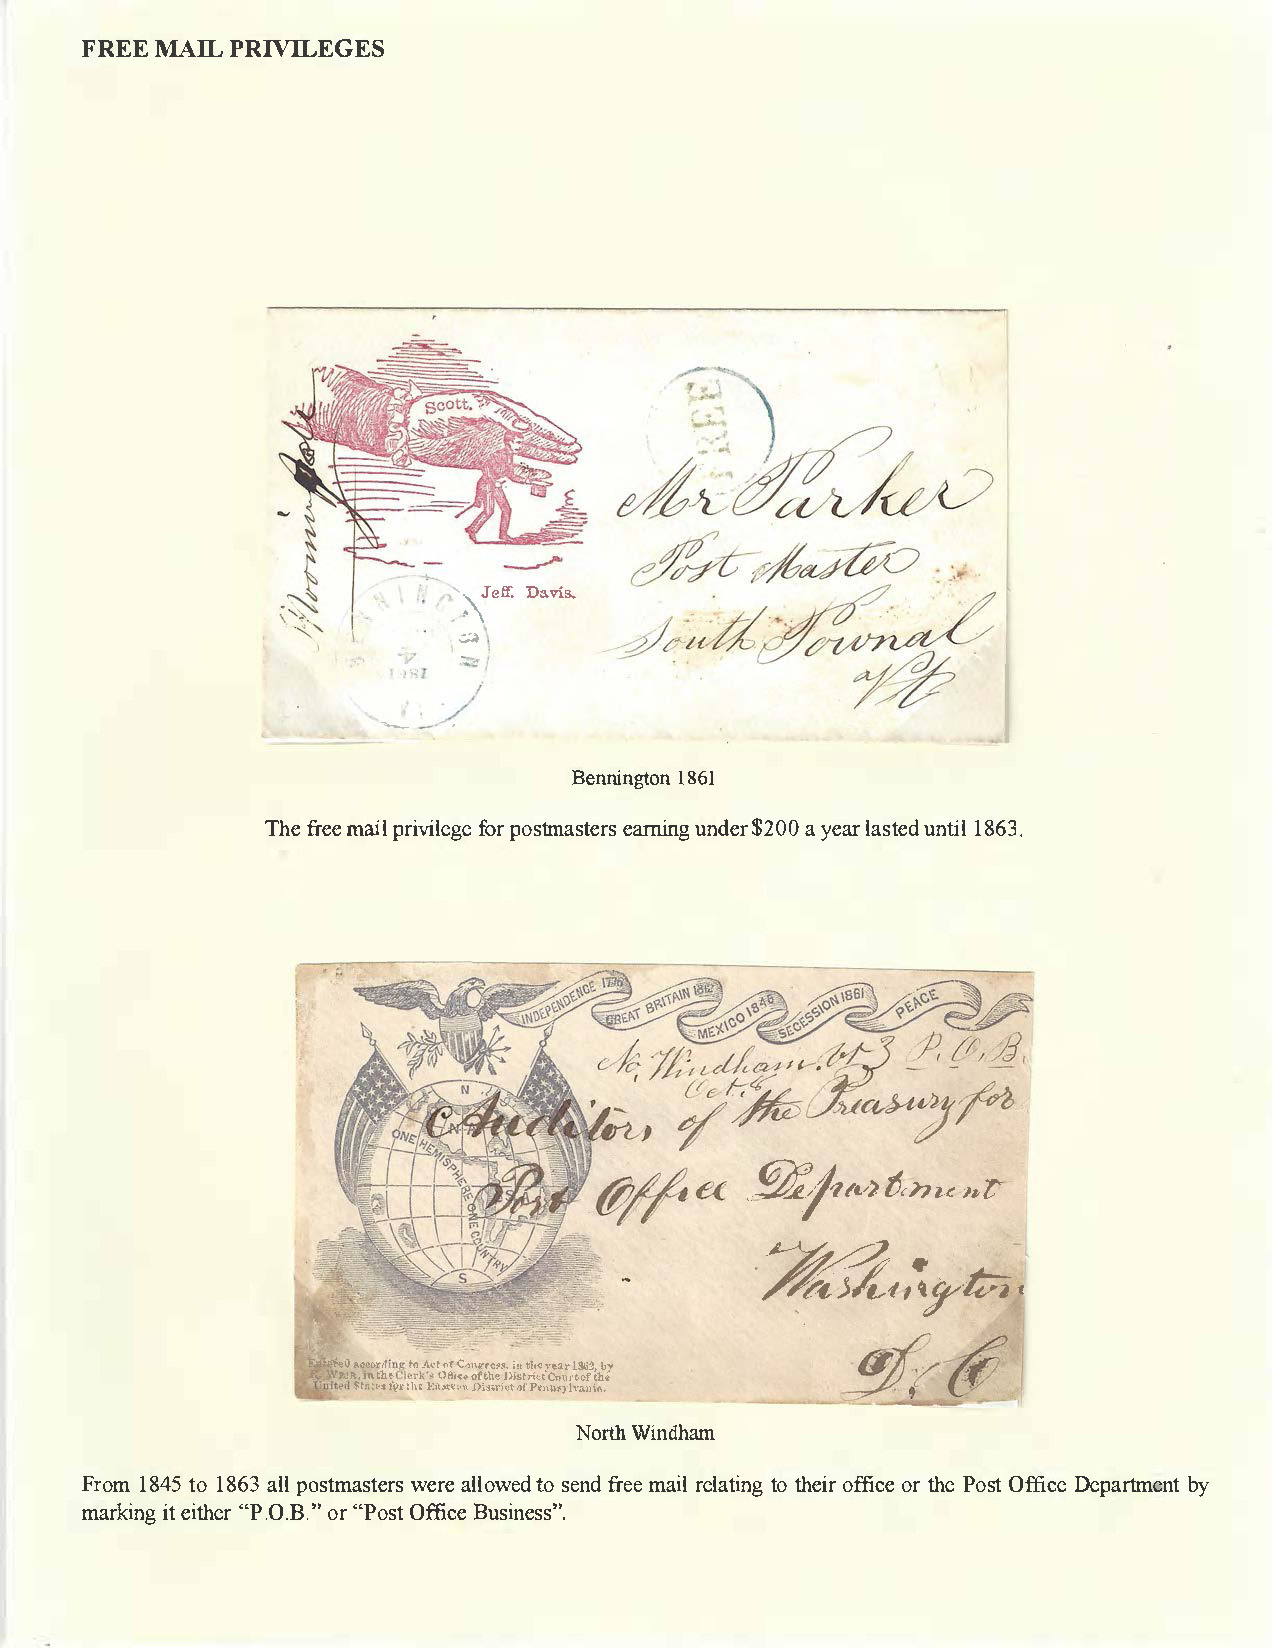 FREE MAIL PRIVILEGES
Scott.
FREE
Mr Parker
Post Master
South Pownal
Vt
Jeff. Davis.
NNINGTON
4
1861
Bennington 1861
The free mail privilege for postmasters earning under $200 a year lasted until 1863.
INDEPENDENCE 1776
GREAT BRITAIN 1812
MEXICO 1846
SECESSION 1861
PEACE
No. Windham. Vt P. O. B.
Oct. 8
Auditor, of the Treasury for
Post Office Department
Washington
D. C
N
ONE HEMISPHERE ONE COUNTRY
S
Entered according to Act of Congress, in the year 1862, by
in the Clerk's Office of the District Court of the
United States for the Eastern District of Pennsylvania.
North Windham
From 1845 to 1863 all postmasters were allowed to send free mail relating to their office or the Post Office Department by
marking it either “P.O.B.” or “Post Office Business”.